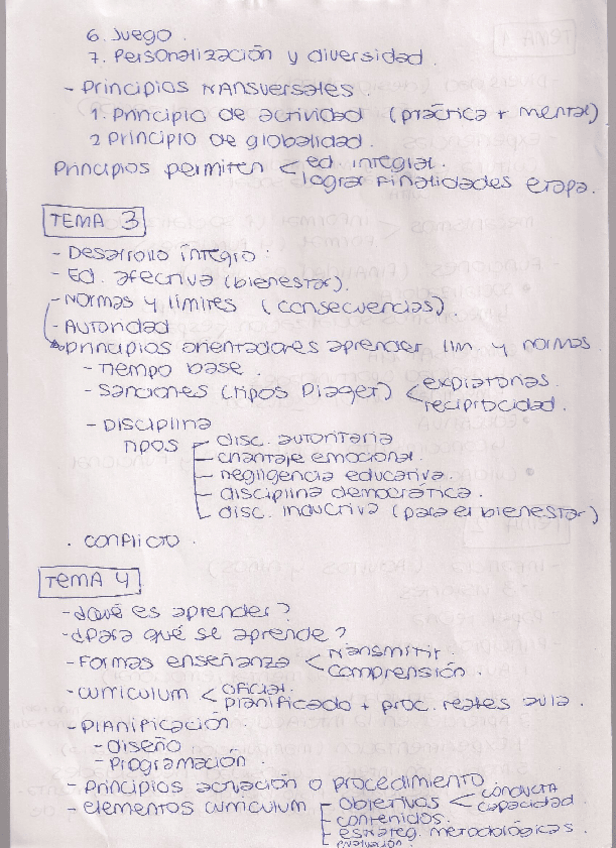 6. Juego.
7. Personalización y diversidad.
- Principios transversales
1. Principio de actividad (práctica + mental)
2 Principio de globalidad.
Principios permiten < ed. integral.
lograr finalidades etapa.
TEMA 3
- Desarrollo íntegro.
- Ed. afectiva (bienestar).
- Normas y límites (consecuencias).
- Autoridad
principios orientadores aprender lim. y normas
- Tiempo base.
- Sanciones (tipos Piaget) < expiatorias.
reciprocidad.
- Disciplina
Tipos - disc. autoritaria
- chantaje emocional.
- negligencia educativa.
- disciplina democrática.
- disc. inductiva (para el bienestar)
. conflicto.
TEMA 4
- ¿Qué es aprender?
- ¿Para qué se aprende?
- Formas enseñanza < transmitir.
comprensión
- curriculum < oficial.
planificado + proc. reales aula.
- Planificación.
- Diseño
- Programación.
- Principios actuación o procedimiento.
- elementos curriculum - objetivos < conducta
capacidad
- contenidos.
- estrateg. metodológicas.
evaluación.